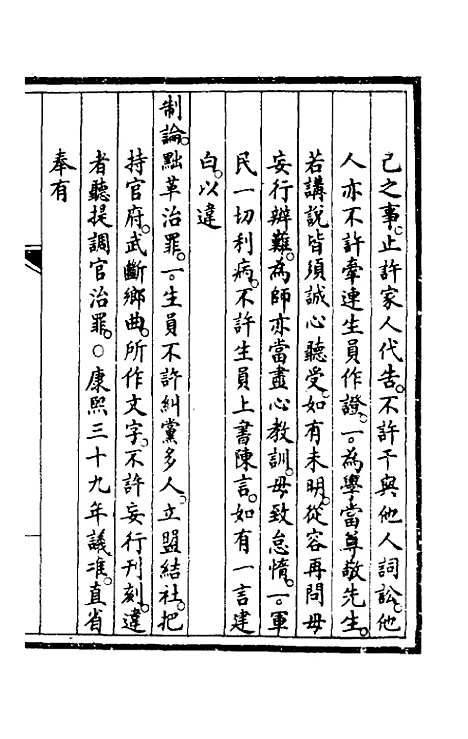 己之事。止許家人代告。不許干與他人詞訟。他
人亦不許牽連生員作證。一。為學當尊敬先生。
若講說皆須誠心聽受。如有未明。從容再問。毋
妄行辨難。為師亦當盡心教訓。毋致怠惰。一。軍
民一切利病。不許生員上書陳言。如有一言建
白。以違
制論。黜革治罪。一。生員不許糾黨多人。立盟結社。把
持官府。武斷鄉曲。所作文字。不許妄行刊刻。違
者聽提調官治罪。○康熙三十九年議准。直省
奉有